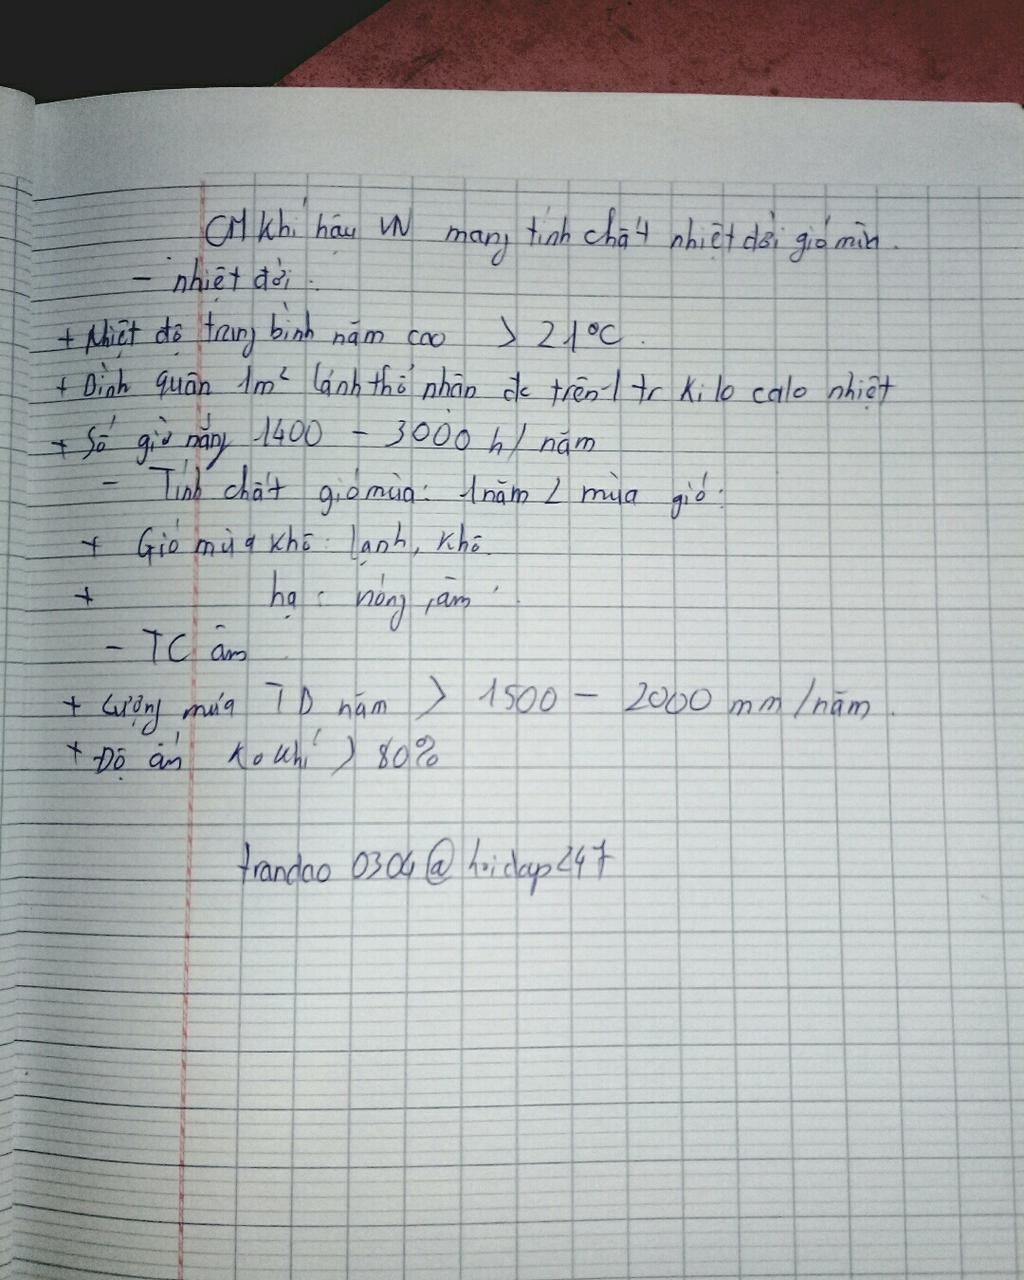 CM khí hậu VN mang tính chất nhiệt đới gió mùa.
- nhiệt đới:
+ Nhiệt độ trung bình năm cao > 21°C.
+ Bình quân 1m² lãnh thổ nhận đc trên 1 tr kilo calo nhiệt
+ Số giờ nắng 1400 - 3000 h/năm
- Tính chất gió mùa: 1 năm 2 mùa gió:
+ Gió mùa khô: lạnh, khô
+ hạ: nóng, ẩm.
- TC ẩm
+ Lượng mưa TB năm > 1500 - 2000 mm/năm.
+ Độ ẩm ko khí > 80%
trandao 0304@hoidap247